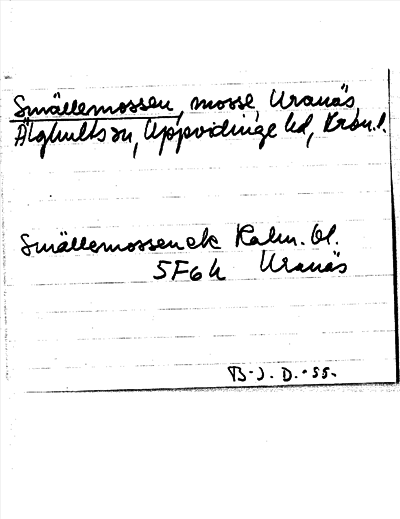 Smällemossen, mosse, Uranäs,
Älghults sn, Uppvidinge hd, Kron.l.
Smällemossen ek Kalm. bl.
5F6h Uranäs
B-J. D. -55.